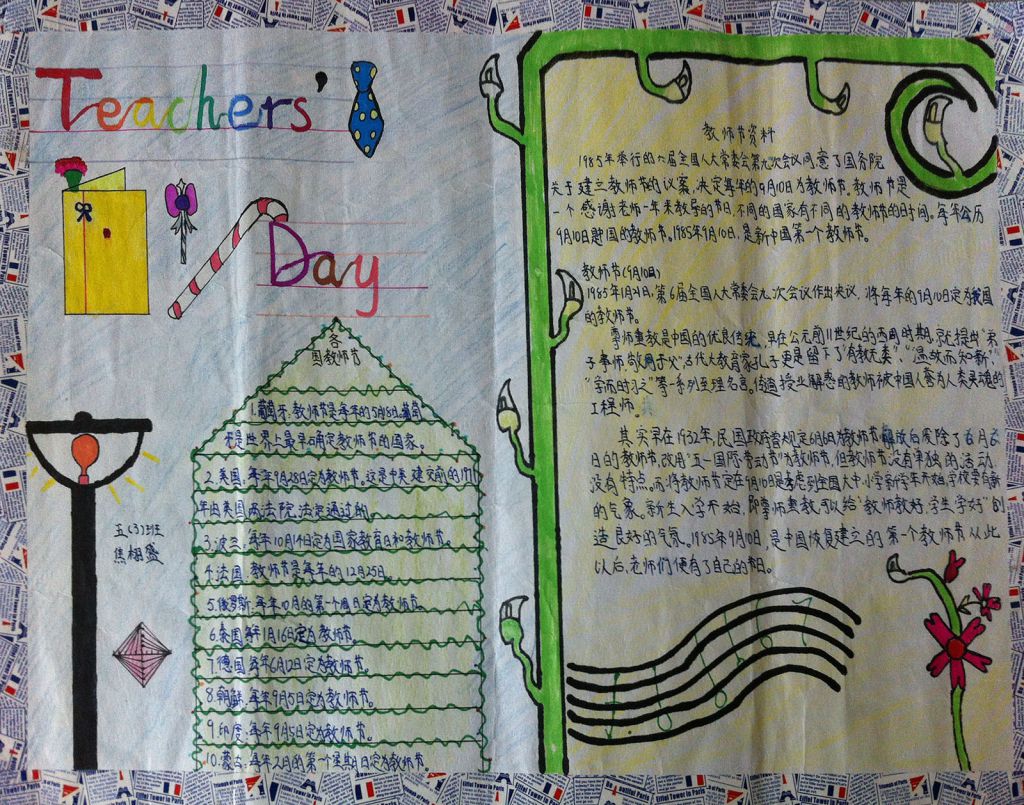 Teachers'
Day
各
国教师节
1.葡萄牙,教师节是每年的5月18日,葡萄
牙是世界上最早确定教师节的国家。
2.美国,每年9月28日定为教师节。这是中美建交前的1971
年由美国两法院,法定通过的
3.波兰,每年10月14日定为国家教育日和教师节。
4.法国,教师节是每年的12月25日。
5.俄罗斯,每年10月的第一个周日定为教师节。
6.泰国每年1月16日定为教师节。
7.德国每年6月12日定为教师节。
8.朝鲜,每年9月5日定为教师节。
9.印度,每年9月5日定为教师节。
10.蒙古,每年2月的第一个星期日定为教师节。
五(3)班
焦栩盛
教师节资料
1985年举行的六届全国人大常委会第九次会议同意了国务院
关于建立教师节的议案,决定每年的9月10日为教师节.教师节是
一个感谢老师一年来教导的节日,不同的国家有不同的教师节的日时间。每年公历
9月10日是国的教师节。1985年9月10日,是新中国第一个教师节。
教师节(9月10日)
1985年1月21日,第6届全国人大常委会九次会议作出来议,将每年的9月10日定为我国
的教师节。
尊师重教是中国的优良传统,早在公元前11世纪的西周时期,就提出"弟
子事师,敬同于父",古代大教育家孔子更是留下了"有教无类"、"温故而知新",
"学而时习之"等一系列至理名言。传道授业解惑的教师被中国人誉为人类灵魂的
工程师。
其实早在1932年,民国政府曾规定6月6日为教师节,解放后废除了6月6
日的教师节,改用"五一国际劳动节"为教师节,但教师节没有单独的活动,
没有特点。而将教师节定在9月10日是考虑到全国大中小学新学年开始,学校要有新
的气象。新生入学开始,即尊师重教,可以给"教师教好,学生学好"创
造良好的气氛。1985年9月10日,是中国恢复建立的第一个教师节,从此
以后,老师们便有了自己的节日。